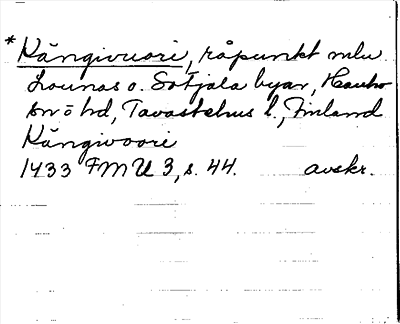 *Kängivuori, råpunkt mlu
Lounas o. Sotjala byar, Hauho
sn o hd, Tavastehus l., Finland
Kängivoori
1433 FMU 3, s. 44. avskr.